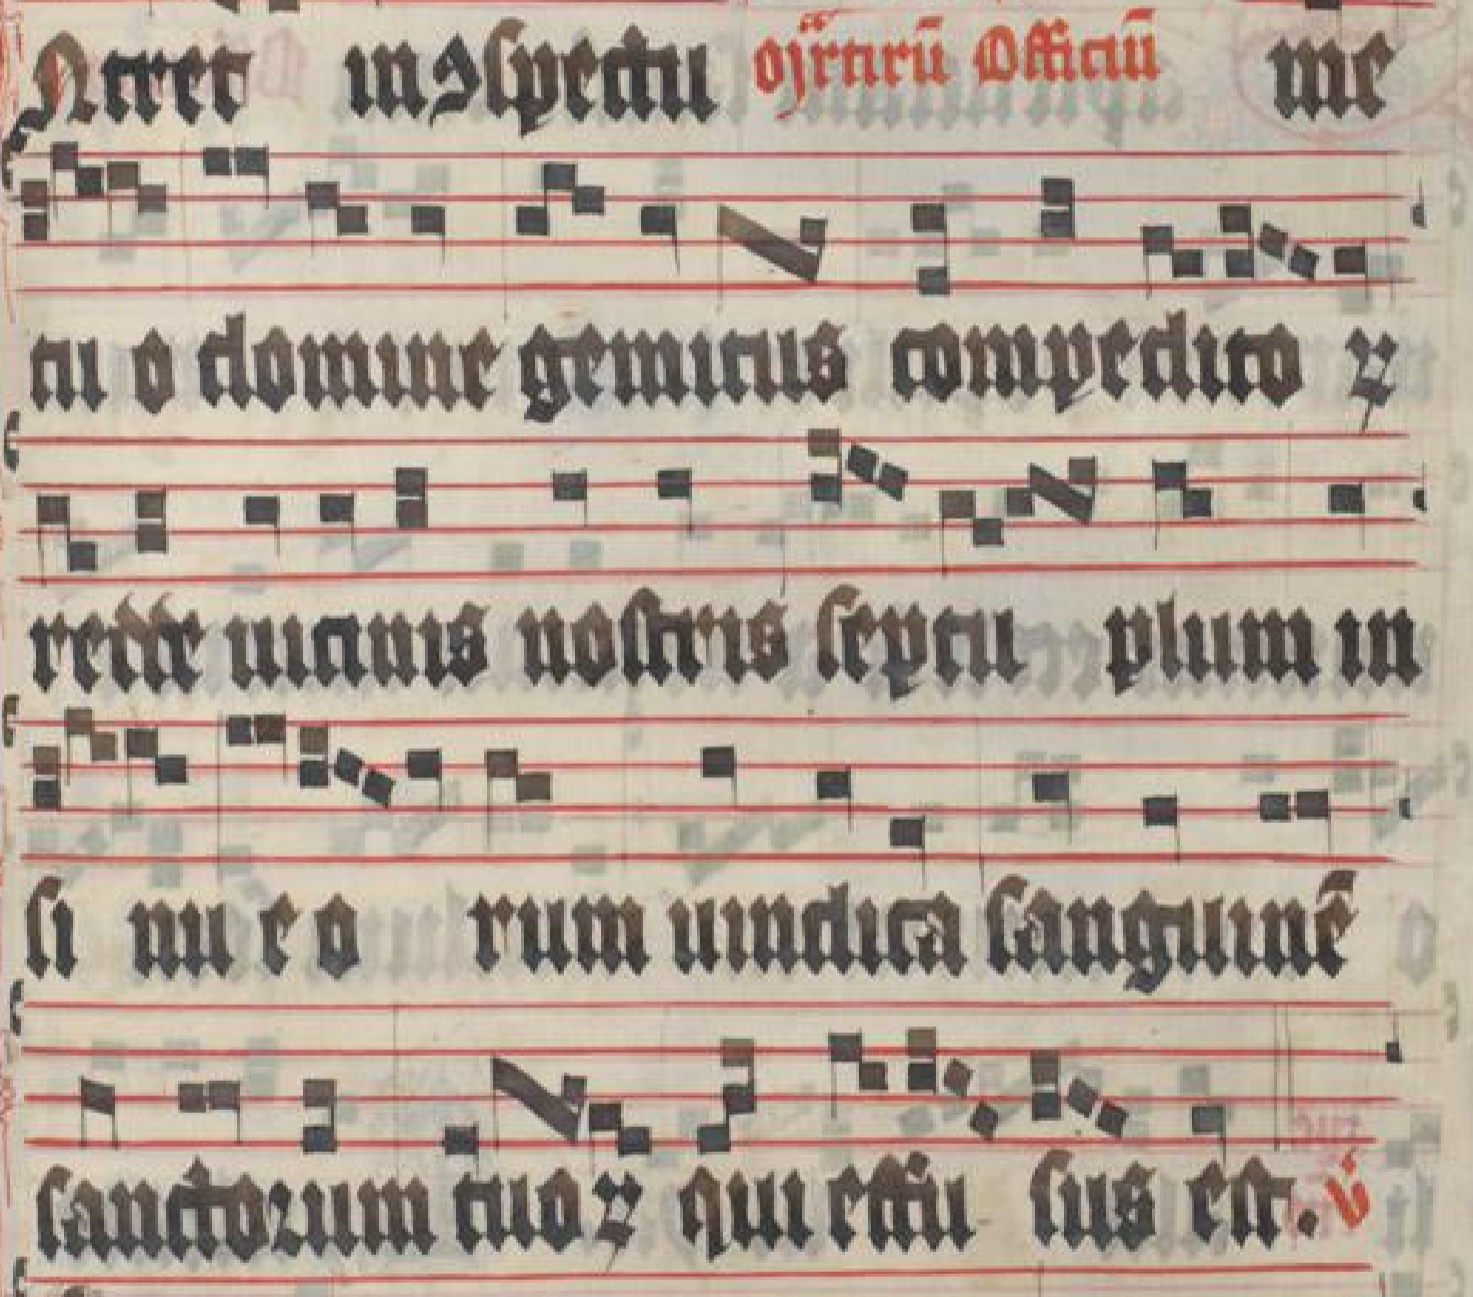 Ntret in ↄspectu mr̄tirū Officiū me
tu o domine gemitus compedito ꝝ
redde uicinis nostris septu plum in
si nu e o rum uindica sanguinē
sanctorum tuoꝝ qui effu sus est. v̓